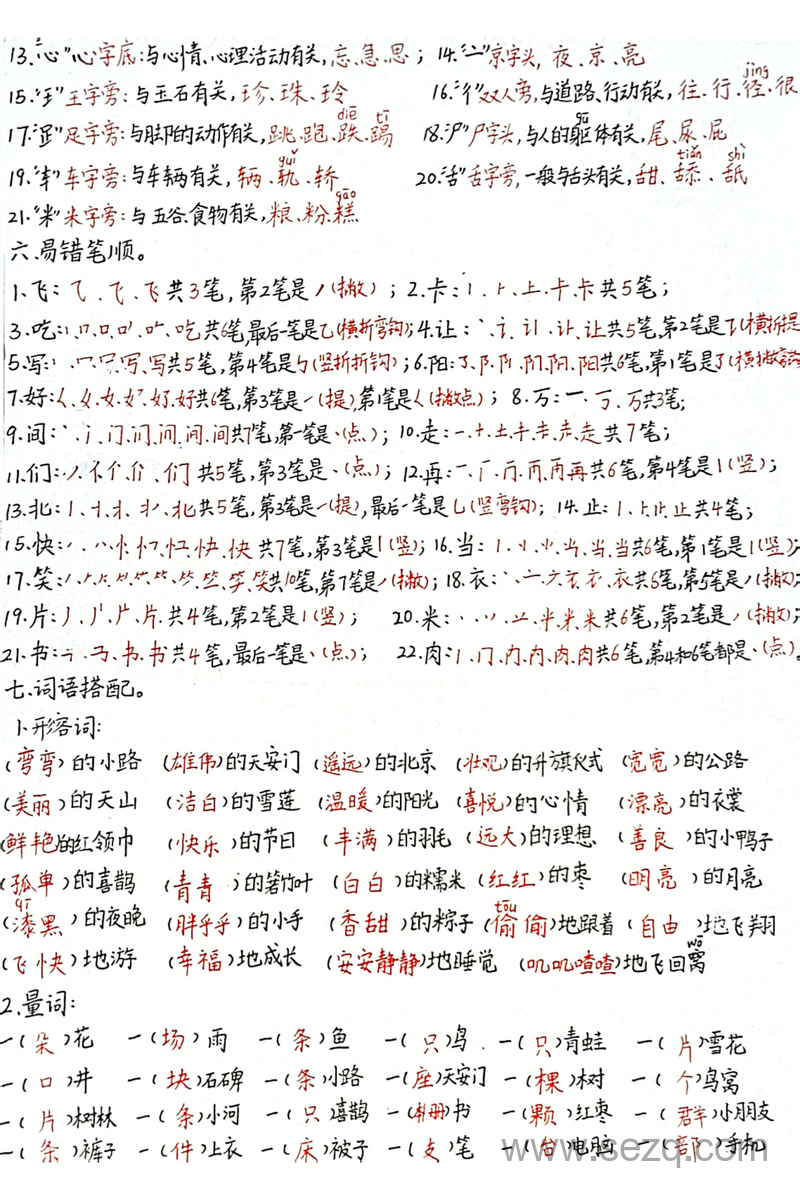 13."心"心字底:与心情、心理活动有关,忘、急、思; 14."亠"京字头,夜、京、亮
15."王"王字旁:与玉石有关,珍、珠、玲 16."彳"双人旁,与道路、行动有关,往、行、径(jìng)、很
17."⻊"足字旁:与脚的动作有关,跳、跑、跌(diē)、踢(tī) 18."尸"尸字头,与人的躯(qū)体有关,尾、尿、屁
19."车"车字旁:与车辆有关,辆、轨(guǐ)、轿 20."舌"舌字旁,一般与舌头有关,甜、舔(tiǎn)、舐(shì)
21."米"米字旁:与五谷、食物有关,粮、粉、糕(gāo)
六、易错笔顺。
1.飞:⺄、飞、飞共3笔,第2笔是丿(撇); 2.卡:丨、⺊、上、卡、卡共5笔;
3.吃:吃共6笔,最后一笔是乙(横折弯钩);4.让:丶、讠、让共5笔,第2笔是㇊(横折提
5.写:写共5笔,第4笔是㇉(竖折折钩);6.阳:阳共6笔,第1笔是㇌(横撇弯钩
7.好:好共6笔,第3笔是㇀(提)第1笔是𡿨(撇点); 8.万:一、万、万共3笔;
9.间:丶、间共7笔,第一笔是丶(点); 10.走:一、十、土、走共7笔;
11.们:丿、亻、们共5笔,第3笔是丶(点); 12.再:一、再共6笔,第4笔是丨(竖);
13.北:丨、北共5笔,第3笔是㇀(提),最后一笔是乚(竖弯钩); 14.止:丨、⺊、止、止共4笔;
15.快:快共7笔,第3笔是丨(竖);16.当:丨、当共6笔,第1笔是丨(竖);
17.笑:笑共10笔,第7笔是丿(撇); 18.衣:丶、亠、衣共6笔,第5笔是丿(撇);
19.片:丿、片共4笔,第2笔是丨(竖); 20.米:丶、米共6笔,第2笔是丿(撇);
21.书:书共4笔,最后一笔是丶(点); 22.肉:丨、冂、内、肉共6笔,第4和6笔都是丶(点)。
七、词语搭配。
1.形容词:
(弯弯)的小路 (雄伟)的天安门 (遥远)的北京 (壮观)的升旗仪式 (宽宽)的公路
(美丽)的天山 (洁白)的雪莲 (温暖)的阳光 (喜悦)的心情 (漂亮)的衣裳
(鲜艳)的红领巾 (快乐)的节日 (丰满)的羽毛 (远大)的理想 (善良)的小鸭子
(孤单)的喜鹊 (青青)的箬竹叶 (白白)的糯米 (红红)的枣 (明亮)的月亮
(漆(qī)黑)的夜晚 (胖乎乎)的小手 (香甜)的粽子 (偷(tōu)偷)地跟着 (自由)地飞翔
(飞快)地游 (幸福)地成长 (安安静静)地睡觉 (叽叽喳喳)地飞回窝(wō)
2.量词:
一(朵)花 一(场)雨 一(条)鱼 一(只)鸟 一(只)青蛙 一(片)雪花
一(口)井 一(块)石碑 一(条)小路 一(座)天安门 一(棵)树 一(个)鸟窝
一(片)树林 一(条)小河 一(只)喜鹊 一(册)书 一(颗)红枣 一(群)小朋友
一(条)裤子 一(件)上衣 一(床)被子 一(支)笔 一(台)电脑 一(部)手机
www.sezq.com